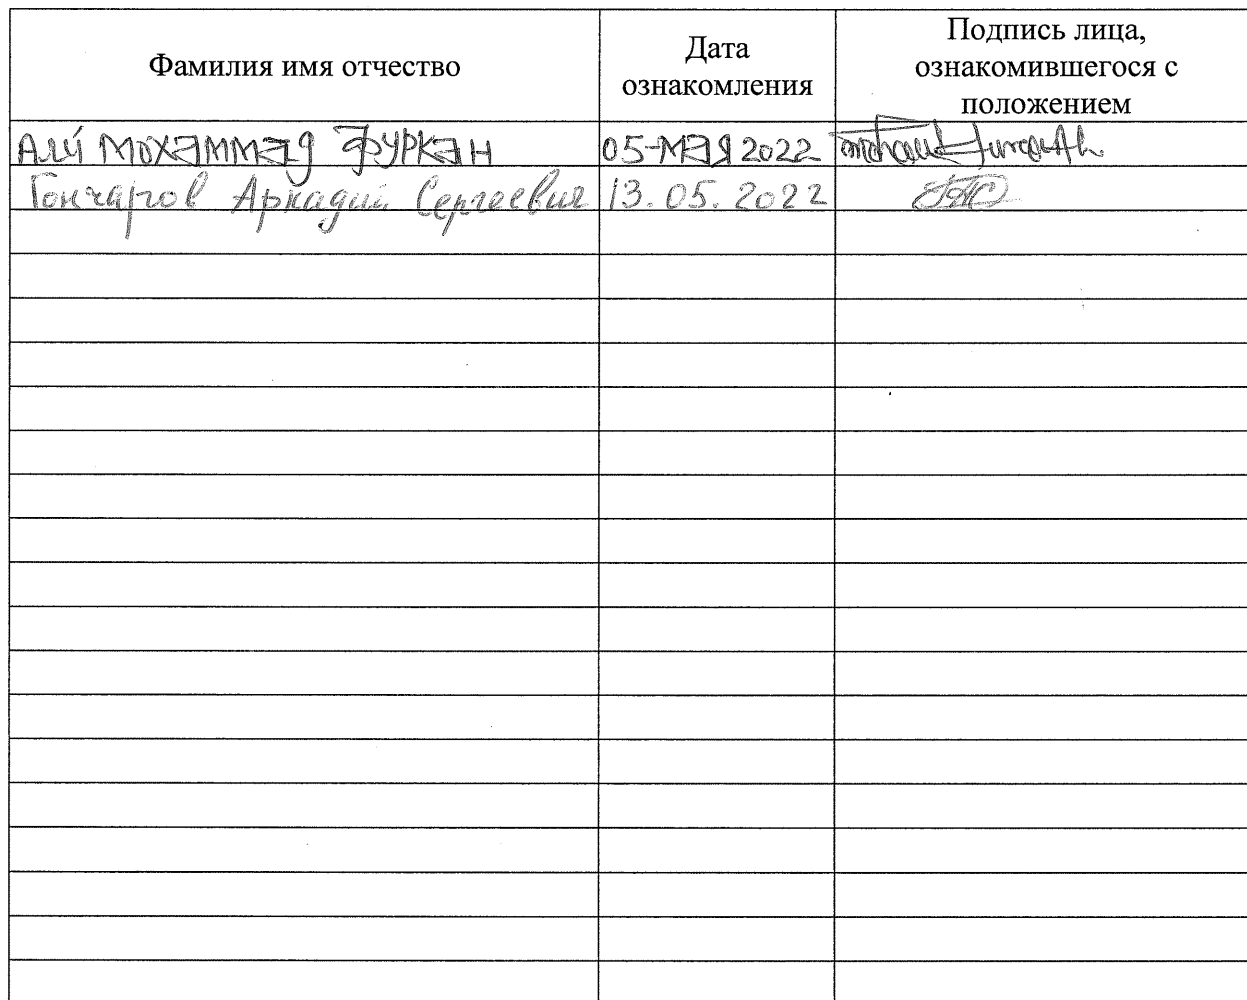 Фамилия имя отчество
Дата
ознакомления
Подпись лица,
ознакомившегося с
положением
Али Мохэммэд Фуркэн 05-мэя 2022
Гончаров Аркадий Сергеевич 13.05.2022